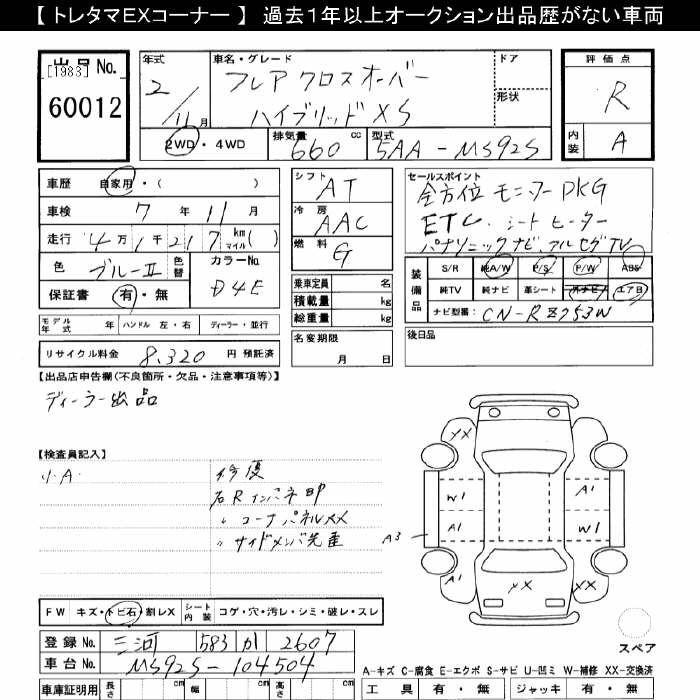 【 トレタマEXコーナー 】 過去1年以上オークション出品歴がない車両
出品 No.
[1983]
60012
年式 車名・グレード ドア
2/11月 フレア クロスオーバー
ハイブリッド XS 形状
2WD・4WD 排気量 660 cc 型式 5AA-MS92S
評価点
R
内装 A
車歴 自家用・( )
車検 7年11月
走行 4万1千217 km マイル( )
色 ブルーⅡ 色替 カラーNo.
保証書 有・無 D4E
モデル年式 年 ハンドル 左・右 ディーラー・並行
リサイクル料金 8,320 円 預託済
シフト AT
冷房 AAC
燃料 G
乗車定員 名
積載量 kg
総重量 kg
名変期限
月 日
セールスポイント
全方位モニターPKG
ETC シートヒーター
パナソニックナビ、フルセグTV
装備品 S/R 純A/W P/S P/W ABS
純TV 純ナビ 革シート 外ナビ エアB
ナビ型番: CN-RZ753W
後日品
【出品店申告欄(不良箇所・欠品・注意事項等)】
ディーラー出品
【検査員記入】
小A 修復
右Rインパネ即
〃 コーナパネルXX
〃 サイドメンバ先歪
XX
W1 A1
A1 W1
A3
A1 XX XX
スペア
FW キズ・トビ石・割レX シート内装 コゲ・穴・汚レ・シミ・破レ・スレ
登録 No. 三河 583 か 2607
車台 No. MS92S-104504
A-キズ C-腐食 E-エクボ S-サビ U-凹ミ W-補修 XX-交換済
車庫証明用 長さ cm 幅 cm 高さ cm
工具 有・無 ジャッキ 有・無